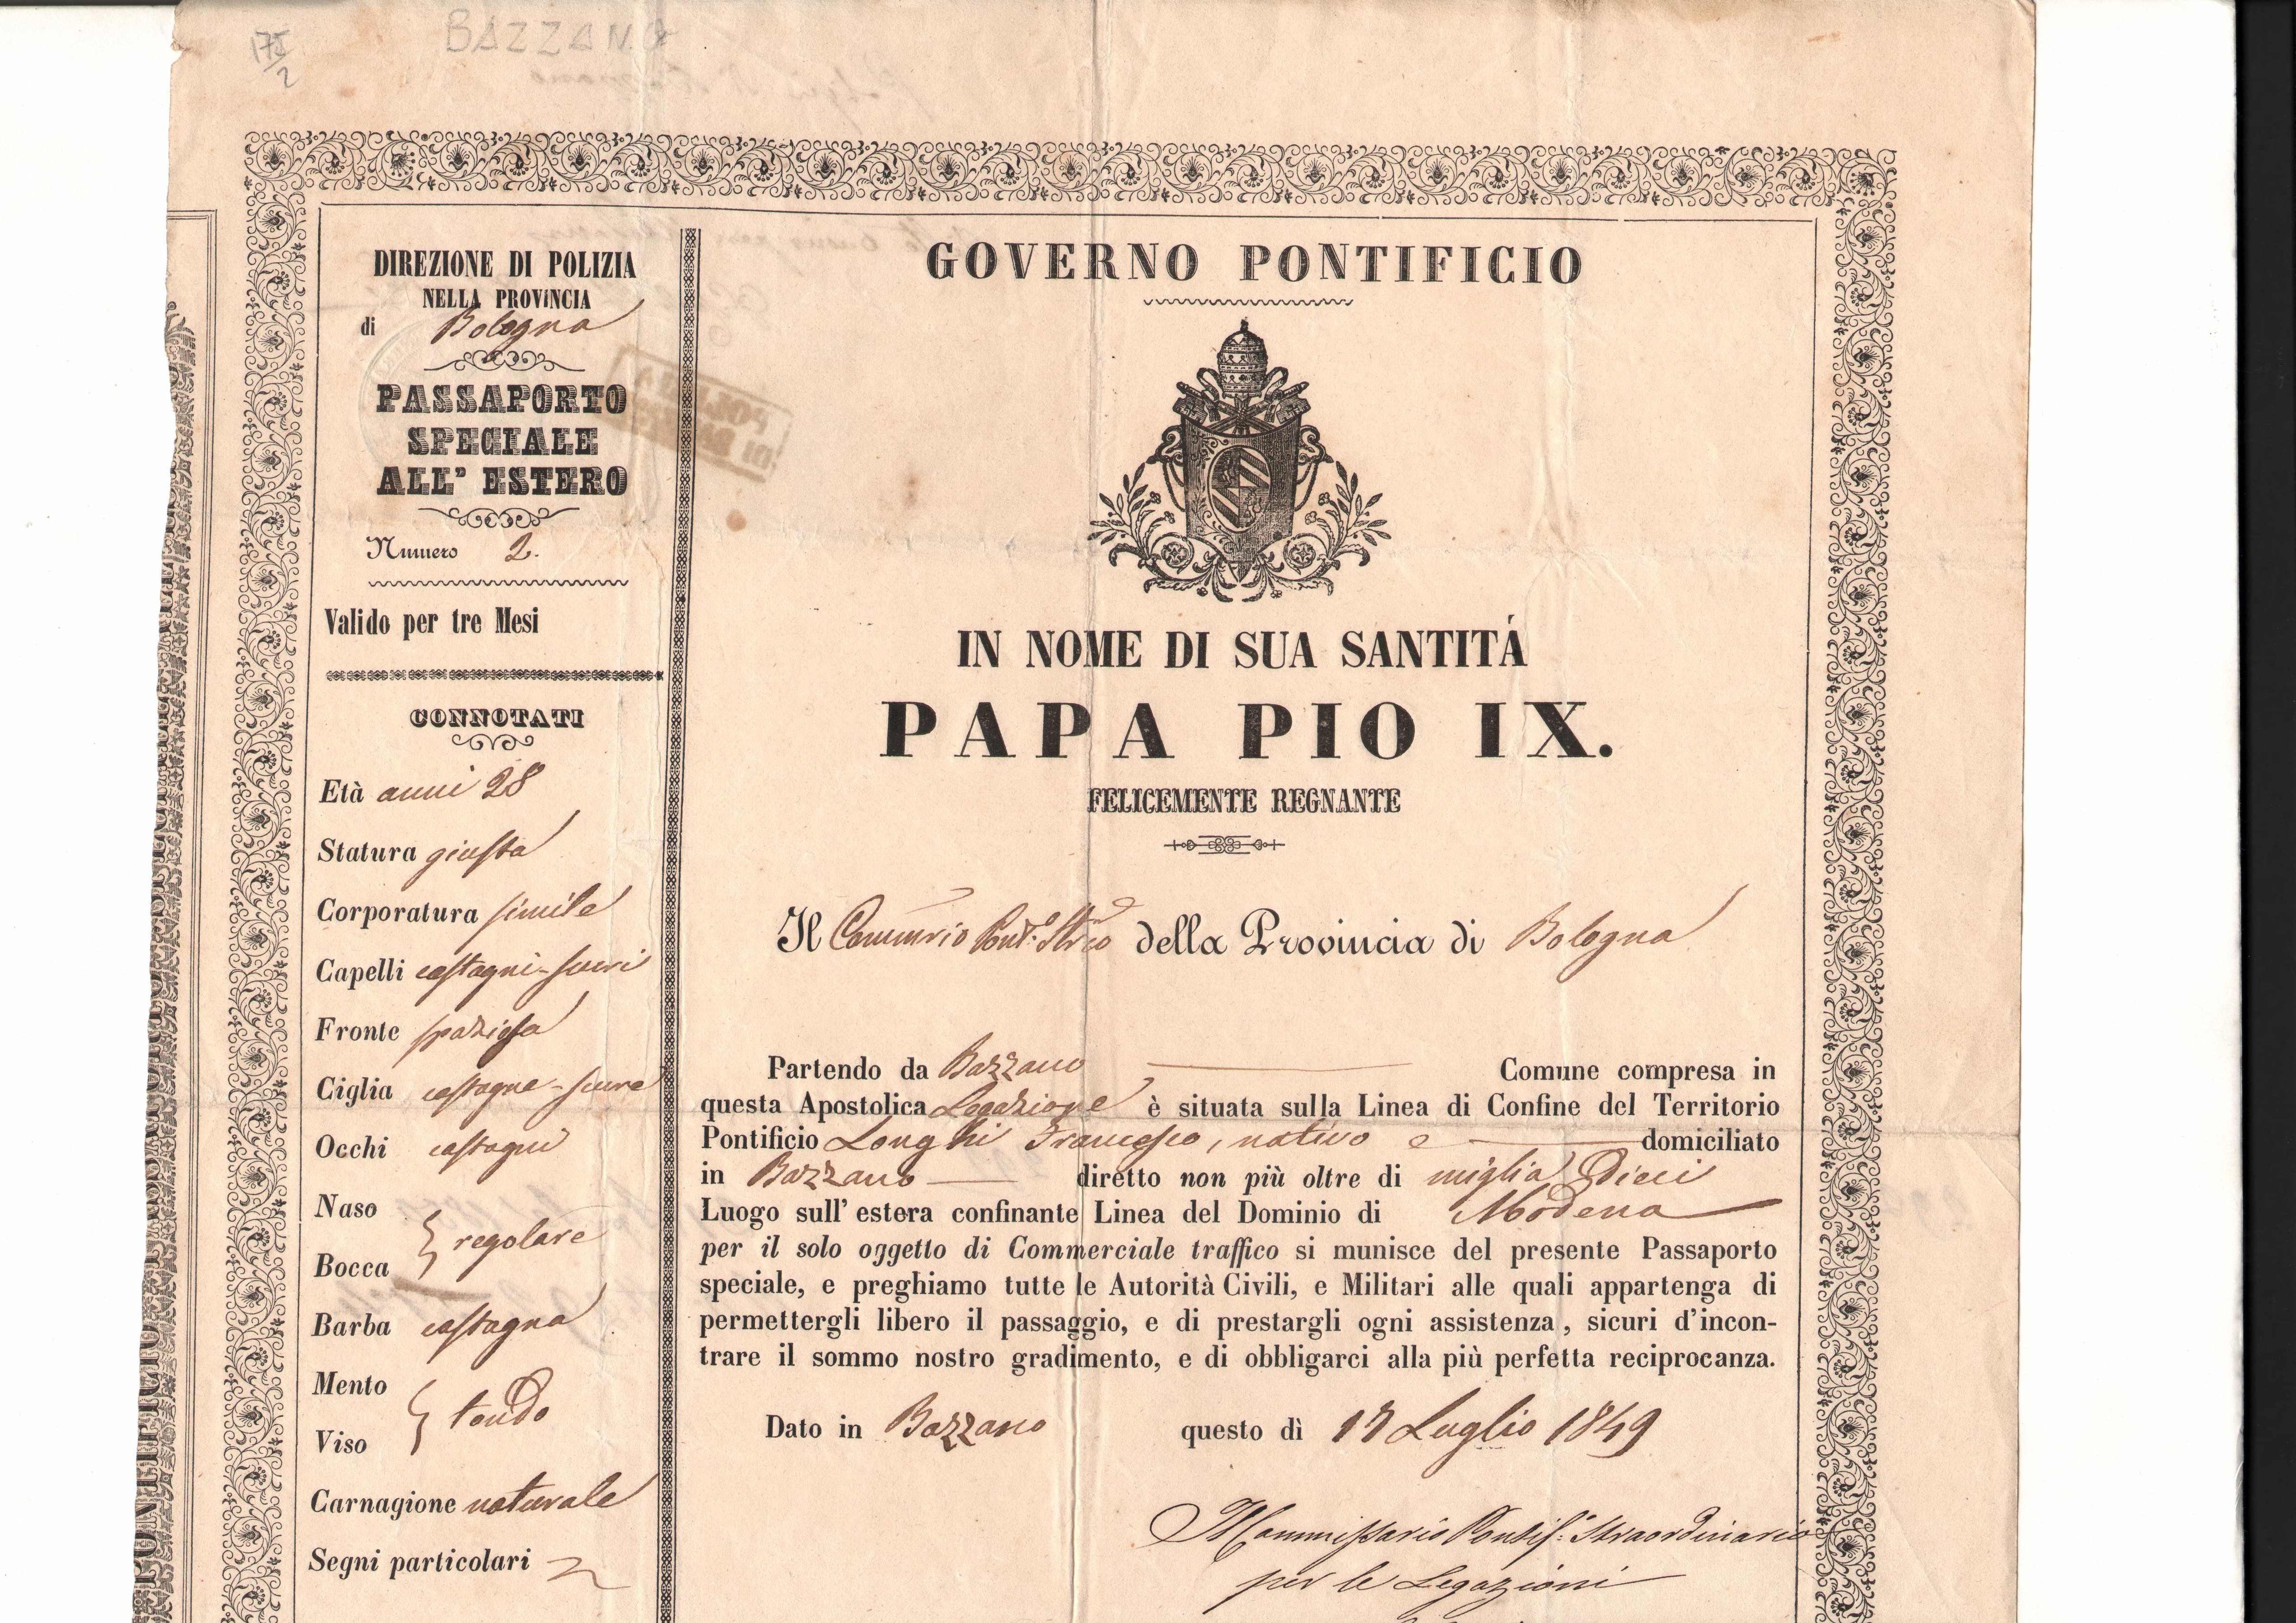 175/2
BAZZANO
DIREZIONE DI POLIZIA
NELLA PROVINCIA
di Bologna
PASSAPORTO
SPECIALE
ALL' ESTERO
Numero 2.
Valido per tre Mesi
CONNOTATI
Età anni 28
Statura giusta
Corporatura simile
Capelli castagni-scuri
Fronte spaziosa
Ciglia castagne-scure
Occhi castagni
Naso
Bocca } regolare
Barba castagna
Mento
Viso } tondo
Carnagione naturale
Segni particolari
GOVERNO PONTIFICIO
IN NOME DI SUA SANTITÁ
PAPA PIO IX.
FELICEMENTE REGNANTE
Il Commrio Pont.° Strio della Provincia di Bologna
Partendo da Bazzano Comune compresa in
questa Apostolica Legazione è situata sulla Linea di Confine del Territorio
Pontificio Longhi Francesco, nativo e domiciliato
in Bazzano diretto non più oltre di miglia dieci
Luogo sull' estera confinante Linea del Dominio di Modena
per il solo oggetto di Commerciale traffico si munisce del presente Passaporto
speciale, e preghiamo tutte le Autorità Civili, e Militari alle quali appartenga di
permettergli libero il passaggio, e di prestargli ogni assistenza, sicuri d'incon-
trare il sommo nostro gradimento, e di obbligarci alla più perfetta reciprocanza.
Dato in Bazzano questo dì 17 Luglio 1849
Il Commissario Pontif: Straordinario
per le Legazioni
PONTIFICIO